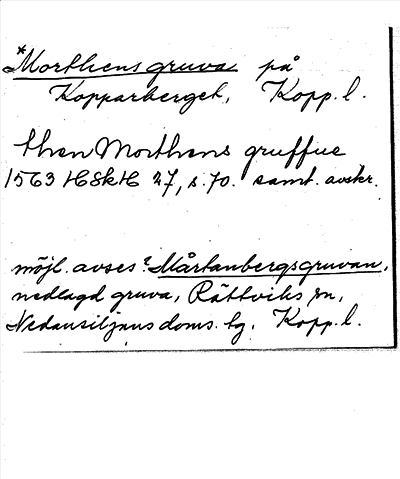 *Morthens gruva på
Kopparberget, Kopp. l.
then Morthens gruffue
1563 HSkH 27, s. 70. samt. avskr.
möjl. avses? Mårtanbergsgruvan,
nedlagd gruva, Rättviks sn,
Nedansiljans doms. tg, Kopp. l.